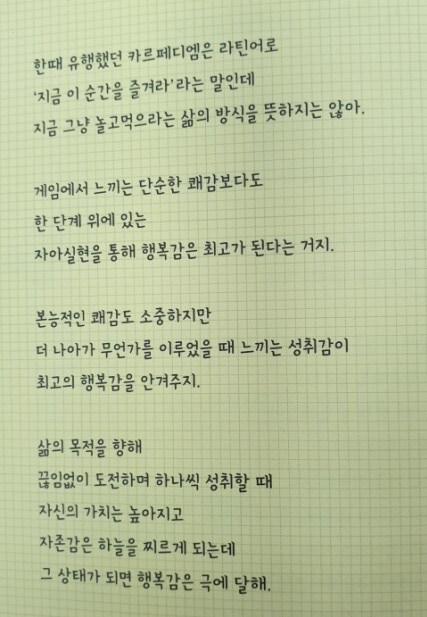 한때 유행했던 카르페디엠은 라틴어로
'지금 이 순간을 즐겨라'라는 말인데
지금 그냥 놀고먹으라는 삶의 방식을 뜻하지는 않아.
게임에서 느끼는 단순한 쾌감보다도
한 단계 위에 있는
자아실현을 통해 행복감은 최고가 된다는 거지.
본능적인 쾌감도 소중하지만
더 나아가 무언가를 이루었을 때 느끼는 성취감이
최고의 행복감을 안겨주지.
삶의 목적을 향해
끊임없이 도전하며 하나씩 성취할 때
자신의 가치는 높아지고
자존감은 하늘을 찌르게 되는데
그 상태가 되면 행복감은 극에 달해.